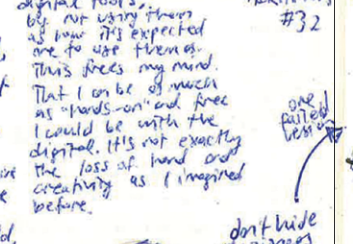 digital tools.
by not using them
as how it's expected
me to use themes.
This frees my mind.
That I can be as much
as "hands-on" and free
I could be with the
digital. It's not exactly
the loss of hand and
creativity as I imagined
before.
#32
one
failed
don't hide